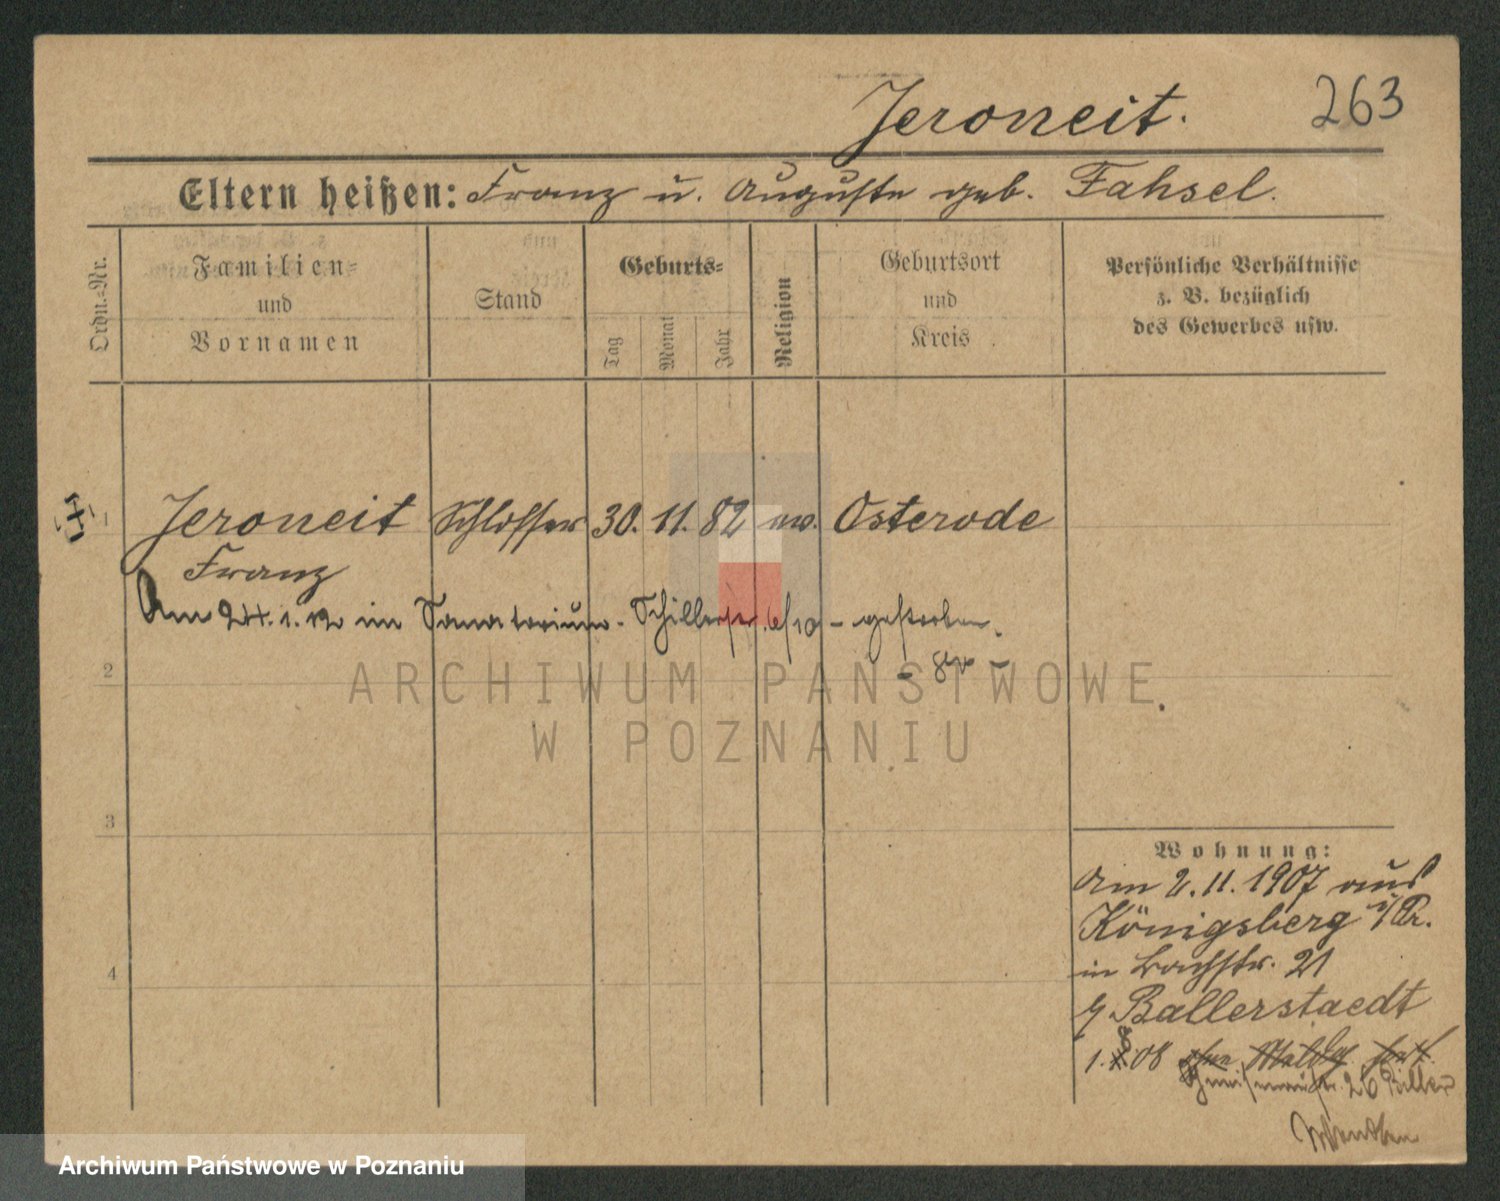 Jeroneit.
263
Eltern heißen: Franz u. Auguste geb. Fahsel.
Ordn.-Nr.
Familien-
und
Vornamen
Stand
Geburts-
Tag
Monat
Jahr
Religion
Geburtsort
und
Kreis
Persönliche Verhältnisse
z. B. bezüglich
des Gewerbes usw.
1 Jeroneit Schlosser 30. 11. 82 ev. Osterode
Franz
Am 24.1.12 im Sanatorium - Schillerstr. 6/10 - gestorben.
2
3
4
Wohnung:
Am 2.11.1907 aus
Königsberg i/Pr.
in Bachstr. 21
b/ Ballerstaedt
1.8.08 ohne Meldg. fort.
Gneisenaustr. 26
ARCHIWUM PAŃSTWOWE
W POZNANIU
Archiwum Państwowe w Poznaniu